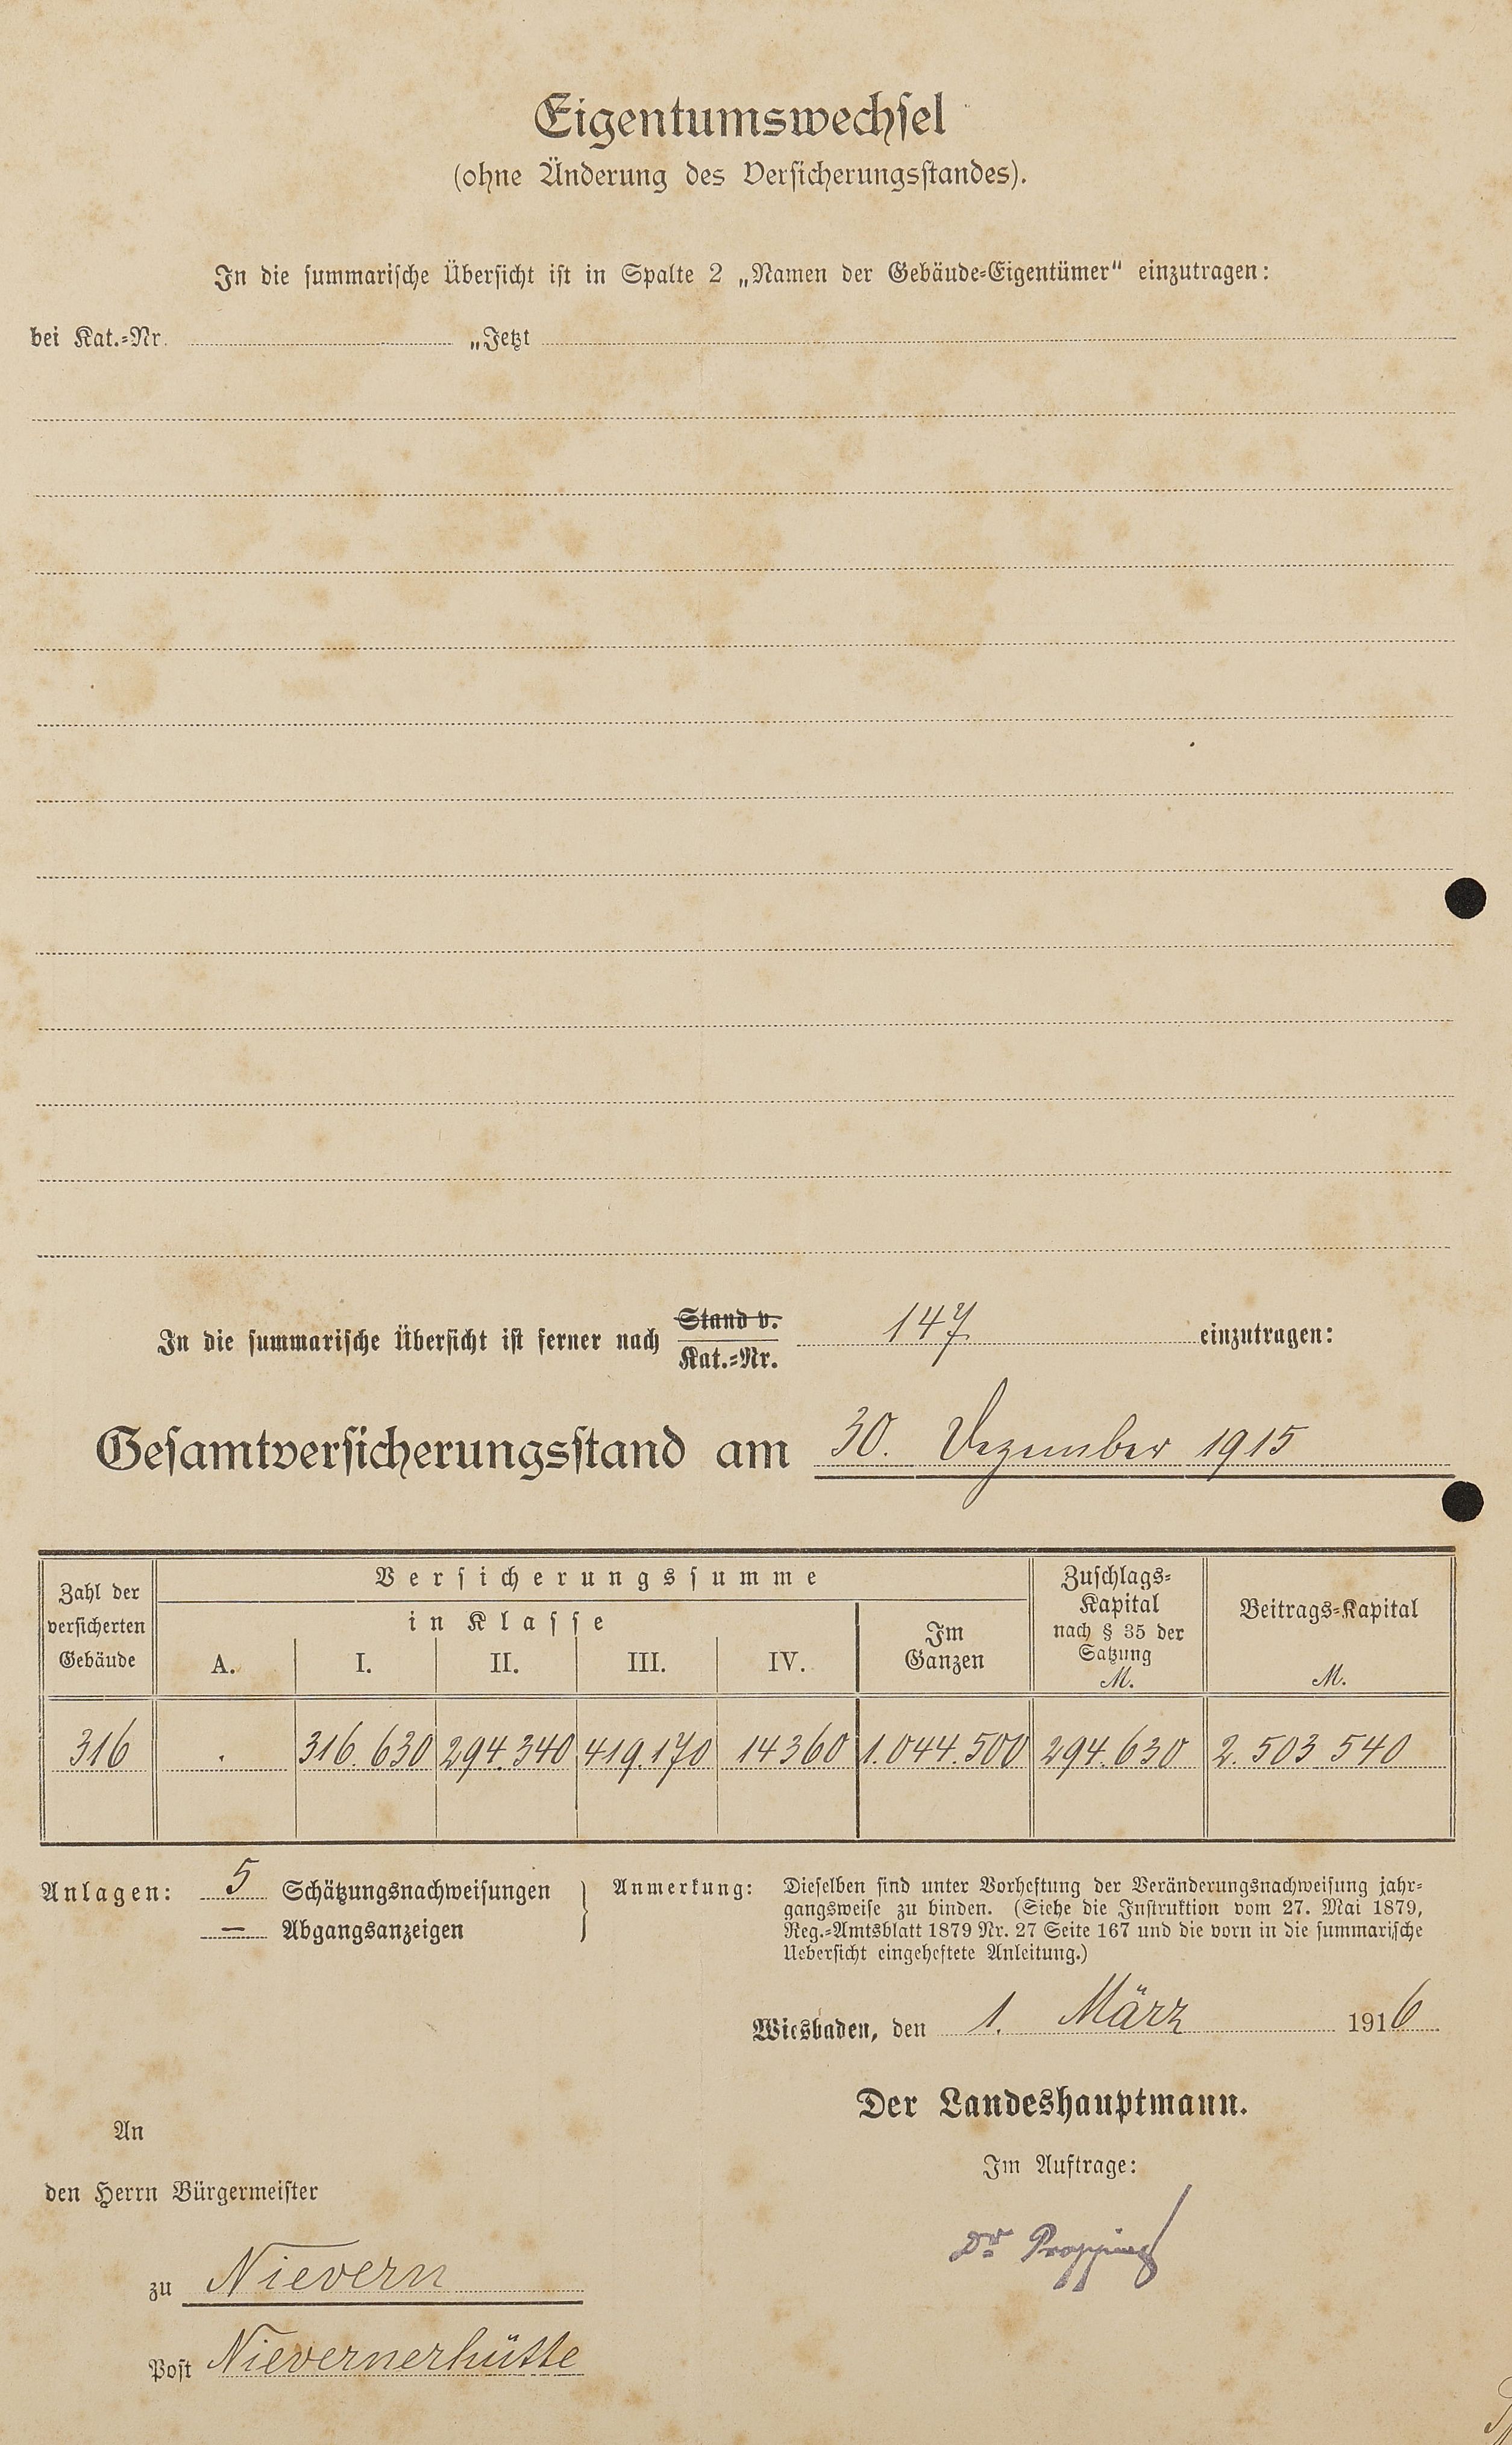 Eigentumswechsel
(ohne Änderung des Versicherungsstandes).
In die summarische Übersicht ist in Spalte 2 „Namen der Gebäude-Eigentümer“ einzutragen:
bei Kat.-Nr. „Jetzt
In die summarische Übersicht ist ferner nach Stand v. Kat.-Nr. 147 einzutragen:
Gesamtversicherungsstand am 30. Dezember 1915
Zahl der versicherten Gebäude
Versicherungssumme
in Klasse
A. I. II. III. IV.
Im Ganzen
Zuschlags-Kapital nach § 35 der Satzung M.
Beitrags-Kapital M.
316 . 316.630 294.340 419.170 14360 1.044.500 294.630 2.503 540
Anlagen: 5 Schätzungsnachweisungen
— Abgangsanzeigen
Anmerkung: Dieselben sind unter Vorheftung der Veränderungsnachweisung jahr-
gangsweise zu binden. (Siehe die Instruktion vom 27. Mai 1879,
Reg.-Amtsblatt 1879 Nr. 27 Seite 167 und die vorn in die summarische
Uebersicht eingeheftete Anleitung.)
Wiesbaden, den 1. März 1916
Der Landeshauptmann.
Im Auftrage:
Dr Propping
An
den Herrn Bürgermeister
zu Nievern
Post Nievernerhütte